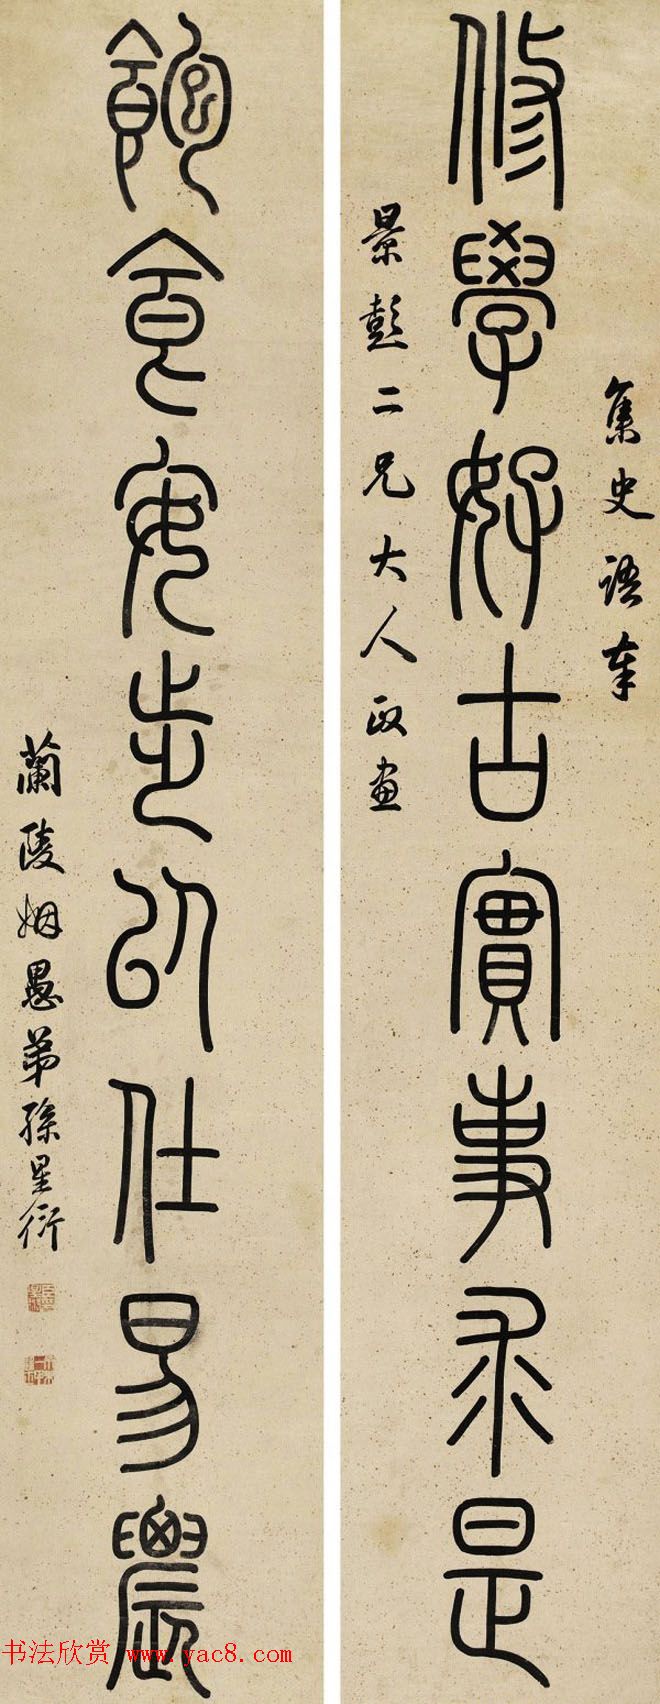 集史語奉
修學好古實事求是
景彭二兄大人政畫
飽食安步以仕易農
蘭陵姻愚弟孫星衍
书法欣赏 www.yac8.com